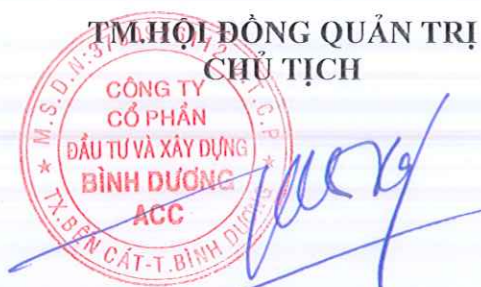 TM.HỘI ĐỒNG QUẢN TRỊ
CHỦ TỊCH
CÔNG TY
CỔ PHẦN
ĐẦU TƯ VÀ XÂY DỰNG
BÌNH DƯƠNG
ACC
TX.BẾN CÁT-T.BÌNH DƯƠNG